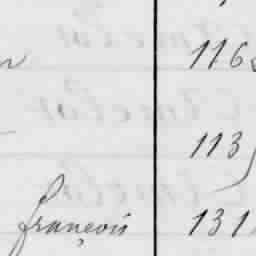 116
113
françois 131